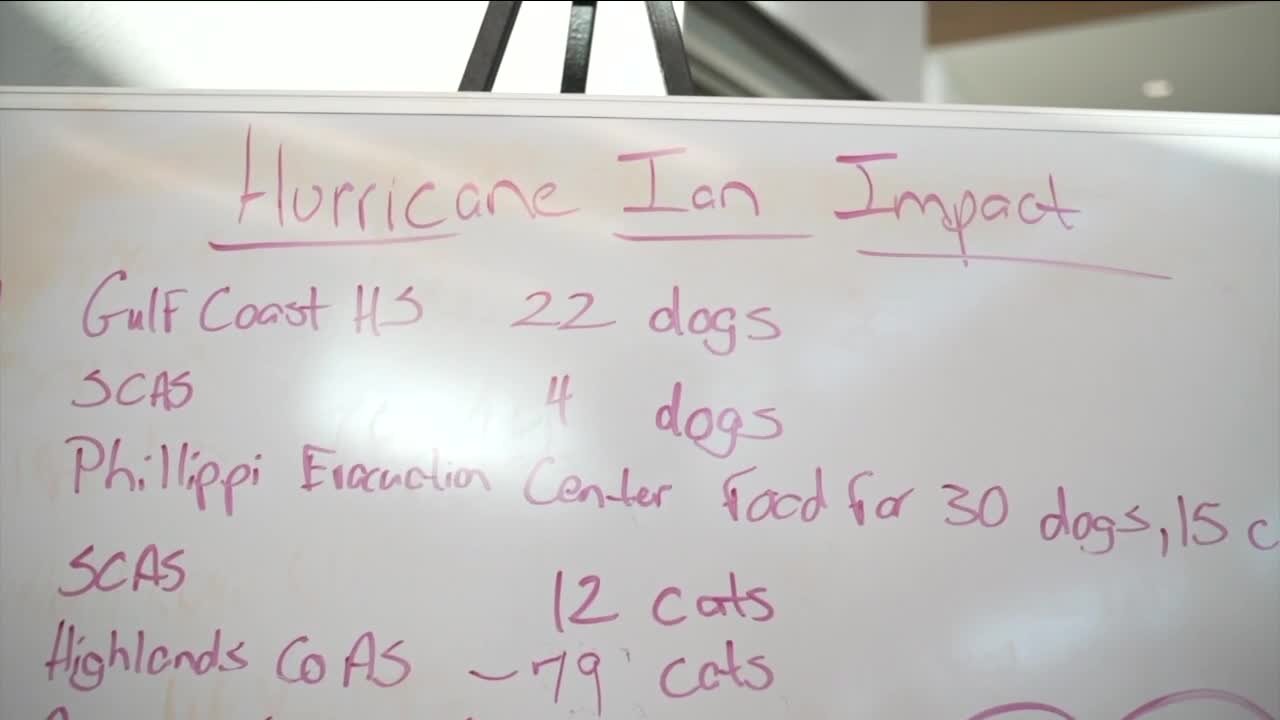 Hurricane Ian Impact
Gulf Coast HS 22 dogs
SCAS 4 dogs
Phillippi Evacuation Center Food for 30 dogs, 15 c
SCAS 12 cats
Highlands Co AS - 79 cats